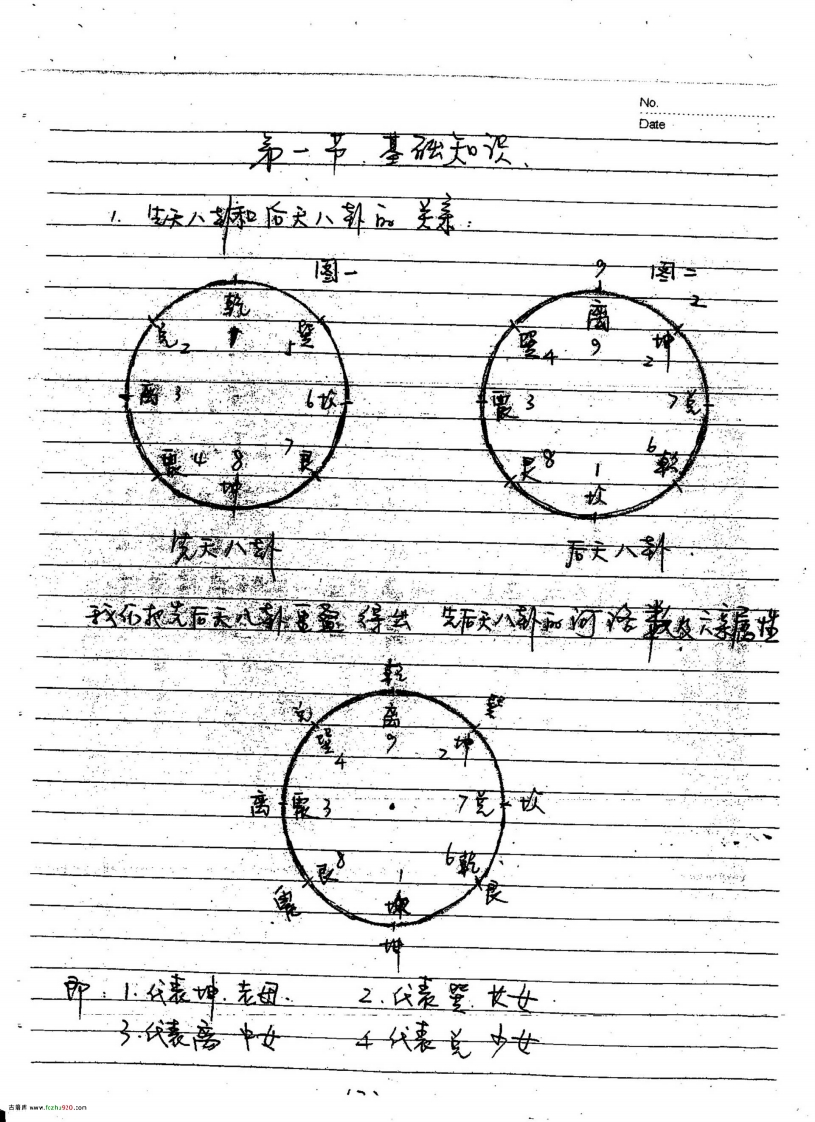 No.
Date
第一节.基础知识.
1. 先天八卦和后天八卦的关系:
图一
乾
1
兑 2
5 巽
离 3
6 坎
震 4
7 艮
8
坤
先天八卦
9 图二
2
离
9
巽 4
2 坤
震 3
7 兑
艮 8
6 乾
1
坎
后天八卦
我们把先后天八卦重叠 得出 先后天八卦的河洛数及六亲属性
乾
兑 离 巽
巽 4 9 2 坤
离 震 3 7 兑 坎
艮 8 1 6 乾
震 坎 艮
坤
即: 1.代表坤.老母. 2.代表巽.长女.
3.代表离 中女 4 代表兑 少女
古易库 www.fczhu920.com